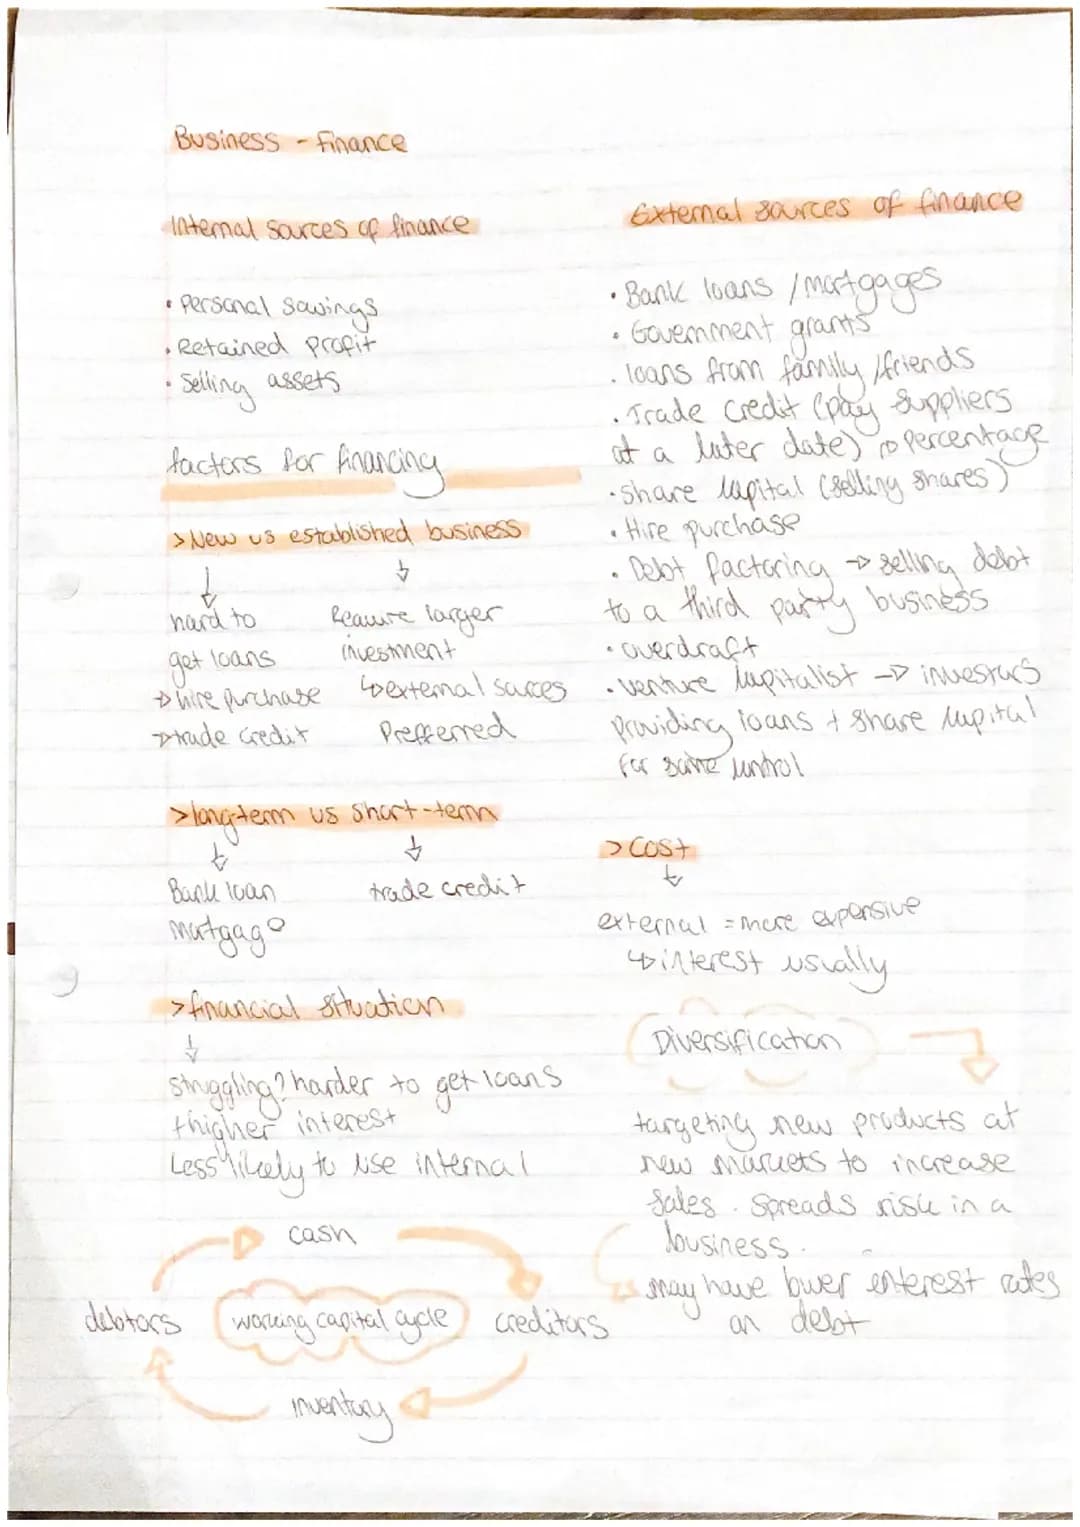 Business - Finance
Internal sources of finance
• Personal savings
• Retained profit
• Selling assets
factors for financing
> New vs established business
hard to
get loans
→ hire purchase
→ trade credit
Require larger
investment
↳ external sources
Prefferred
> long-term vs short-term
Bank loan
mortgage
trade credit
> financial situation
struggling? harder to get loans
+ higher interest
Less likely to use internal
cash
debtors
working capital cycle
creditors
inventory
External sources of finance
• Bank loans / mortgages
• Government grants
• loans from family / friends
• Trade credit (pay suppliers
at a later date) → percentage
• share capital (selling shares)
• Hire purchase
• Debt factoring → selling debt
to a third party business
• overdraft
• venture capitalist → investors
providing loans + share capital
for some control
> Cost
external = more expensive
↳ interest usually
Diversification
targeting new products at
new markets to increase
sales. Spreads risk in a
business.
may have lower enterest rates
on debt